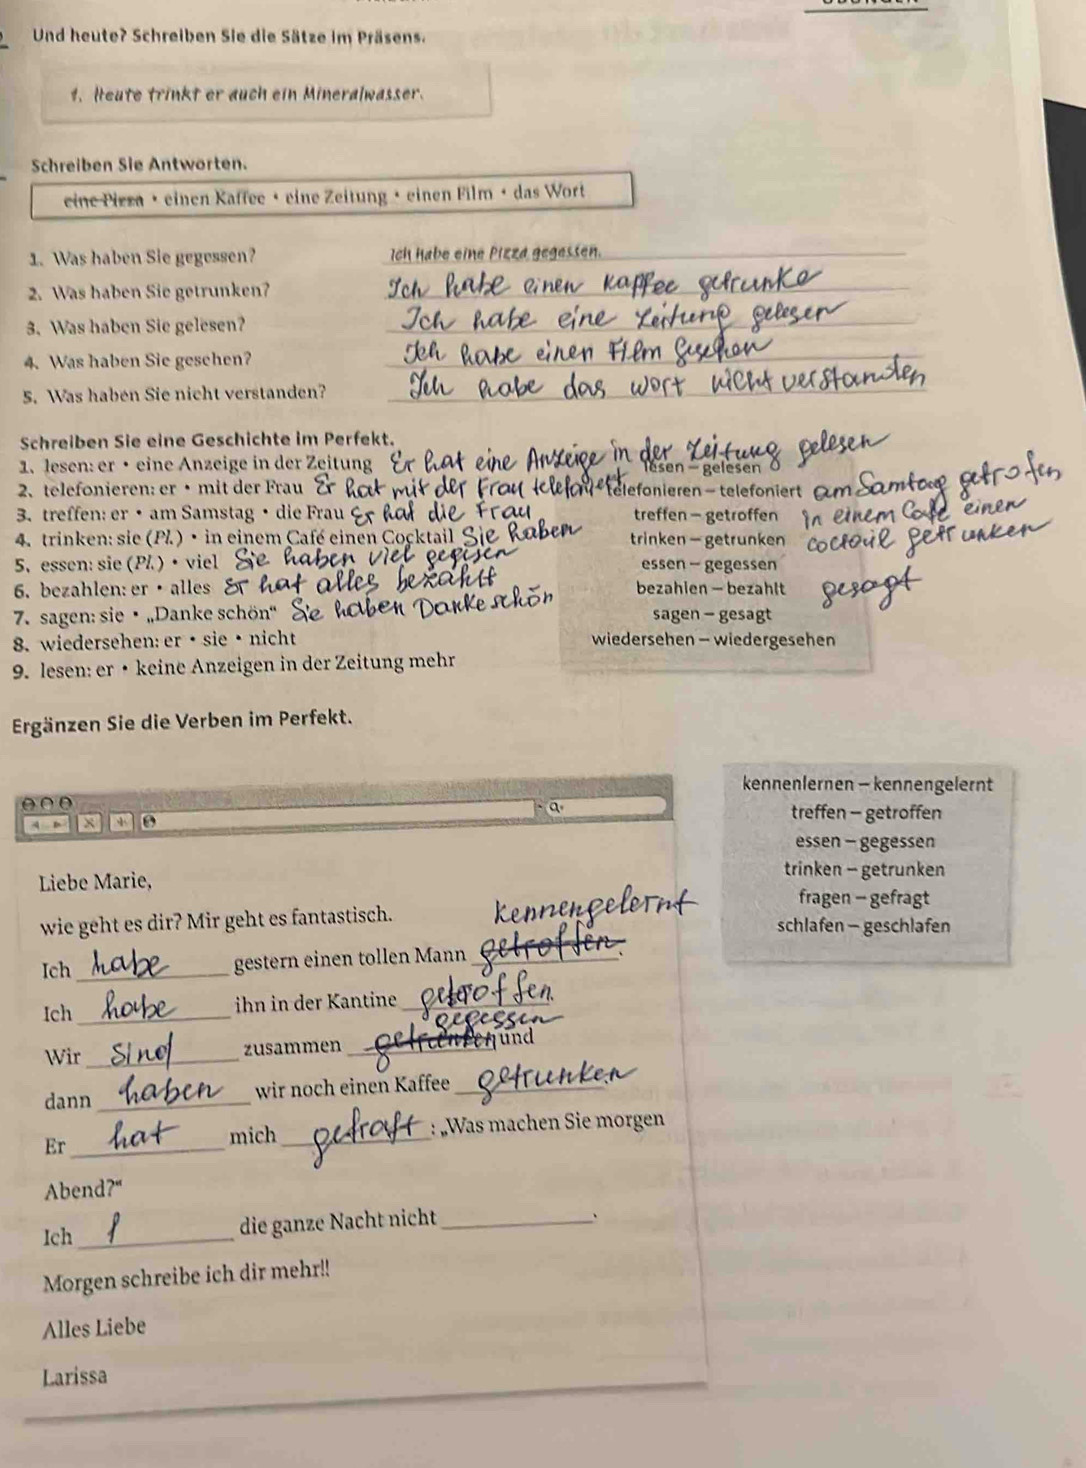 Und heute? Schreiben Sie die Sätze im Präsens.
1. Heute trinkt er auch ein Mineralwasser.
Schreiben Sie Antworten.
eine Pizza • einen Kaffee • eine Zeitung • einen Film • das Wort
1. Was haben Sie gegessen? Ich habe eine Pizza gegessen.
2. Was haben Sie getrunken? Ich habe einen Kaffee getrunke
3. Was haben Sie gelesen? Ich habe eine Zeitung gelesen
4. Was haben Sie gesehen? Ich habe einen Film gesehen
5. Was haben Sie nicht verstanden? Ich habe das wort nicht verstanden
Schreiben Sie eine Geschichte im Perfekt.
1. lesen: er • eine Anzeige in der Zeitung Er hat eine Anzeige in der Zeitung gelesen
lesen – gelesen
2. telefonieren: er • mit der Frau Er hat mit der Frau telefoniert
telefonieren – telefoniert am Samtag getrofen
3. treffen: er • am Samstag • die Frau Er hat die Frau
treffen – getroffen in einem Cafe einen
4. trinken: sie (Pl.) • in einem Café einen Cocktail Sie haben
trinken – getrunken coctail getrunken
5. essen: sie (Pl.) • viel Sie haben viel gegisen
essen – gegessen
6. bezahlen: er • alles Er hat alles bezahlt
bezahlen – bezahlt gesagt
7. sagen: sie • „Danke schön“ Sie haben Danke schön
sagen – gesagt
8. wiedersehen: er • sie • nicht
wiedersehen – wiedergesehen
9. lesen: er • keine Anzeigen in der Zeitung mehr
Ergänzen Sie die Verben im Perfekt.
kennenlernen – kennengelernt
treffen – getroffen
essen – gegessen
trinken – getrunken
fragen – gefragt
schlafen – geschlafen
Liebe Marie,
wie geht es dir? Mir geht es fantastisch.
kennengelernt
Ich habe gestern einen tollen Mann getroffen.
Ich habe ihn in der Kantine getroffen.
gegessen
Wir sind zusammen getrunken und
dann haben wir noch einen Kaffee getrunken.
Er hat mich gefraft : „Was machen Sie morgen
Abend?“
Ich die ganze Nacht nicht .
Morgen schreibe ich dir mehr!!
Alles Liebe
Larissa